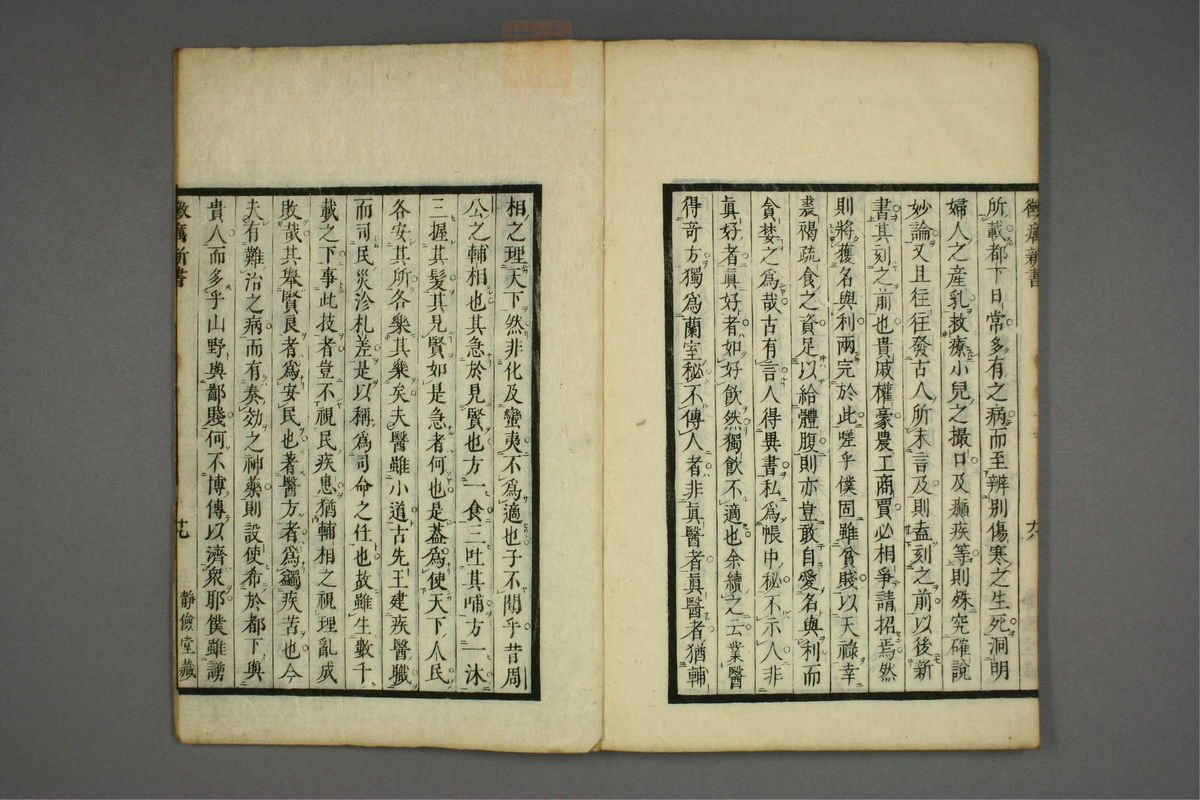 黴癘新書
所載都下日常多有之病而至辨別傷寒之生死洞明
婦人之産乳救療小兒之撮口及癲疾等則殊究確說
妙論又且往往發古人所未言及則盍刻之前以後新
書其刻之前也貴戚權豪農工商賈必相爭請招焉然
則將獲名與利兩完於此嗟乎僕固雖貧賤以天祿幸
裘褐疏食之資足以給體腹則亦豈敢自愛名與利而
貪婪之爲哉古有言人得異書私爲帳中秘不示人非
眞好者眞好者如好飲然獨飲不適也余續之云業醫
得奇方獨爲蘭室秘不傳人者非眞醫者眞醫者猶輔
相之理天下然非化及蠻夷不爲適也子不聞乎昔周
公之輔相也其急於見賢也方一食三吐其哺方一沐
三握其髮其見賢如是急者何也是蓋爲使天下人民
各安其所各樂其樂矣夫醫雖小道古先王建疾醫職
而司民災沴札差是以稱爲司命之任也故雖生數千
載之下事此技者豈不視民疾患猶輔相之視理亂成
敗哉其擧賢良者爲安民也著醫方者爲蠲疾苦也今
夫有難治之病而有奏効之神藥則設使布於都下與
貴人而多乎山野與鄙賤何不博傳以濟衆耶僕雖謭
黴癘新書
廿九
靜儉堂藏